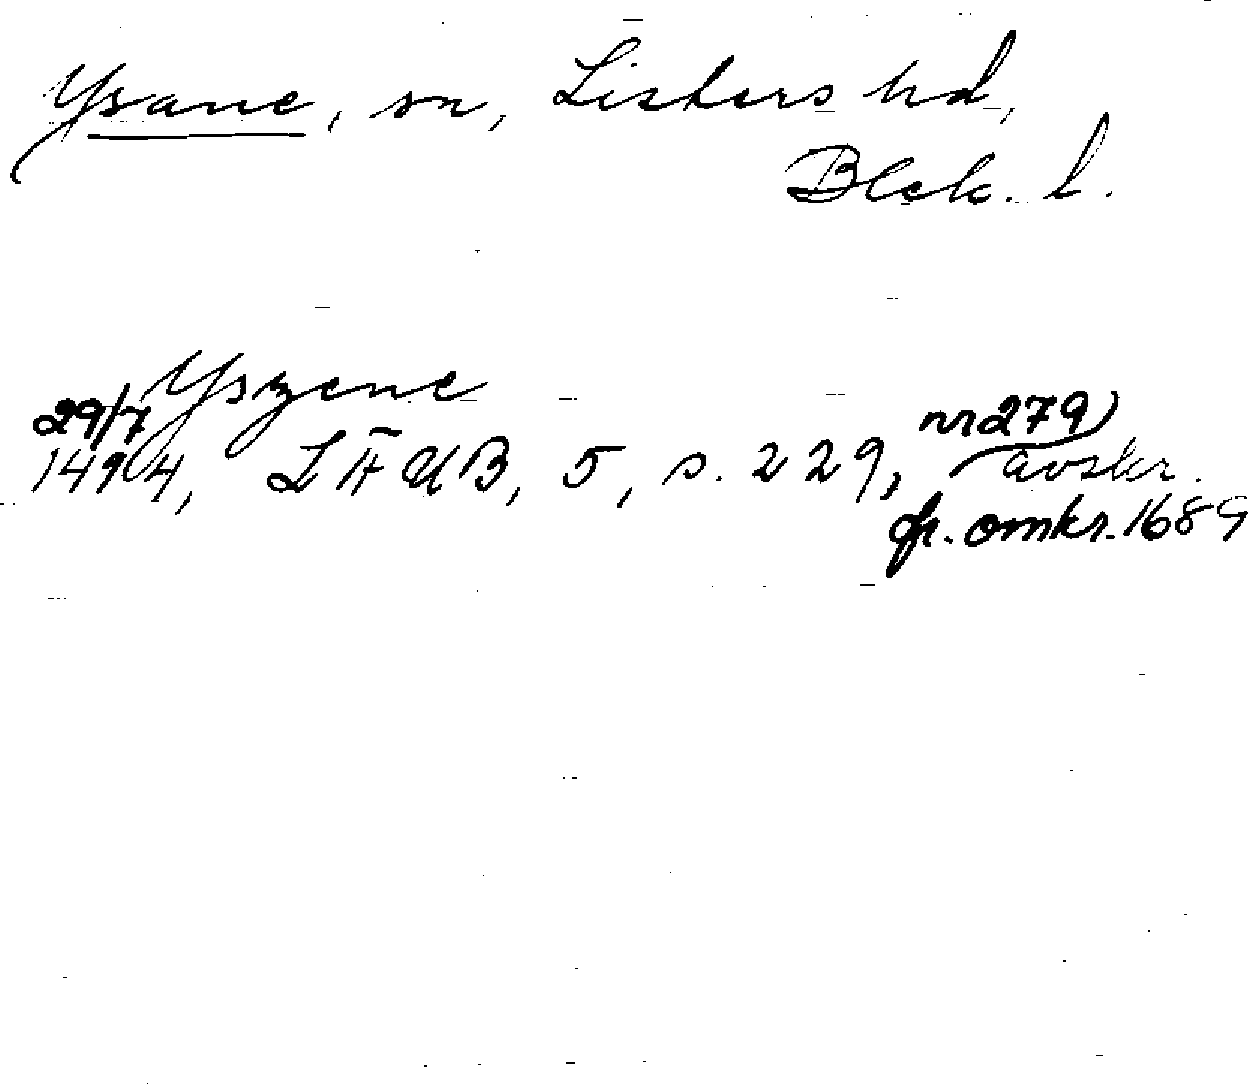 Ysane, sn, Listers hd,
Blek. l.
Yszene
29/7
1494, LÄUB, 5, s. 229, nr 279)
avskr.
fr. omkr. 1689